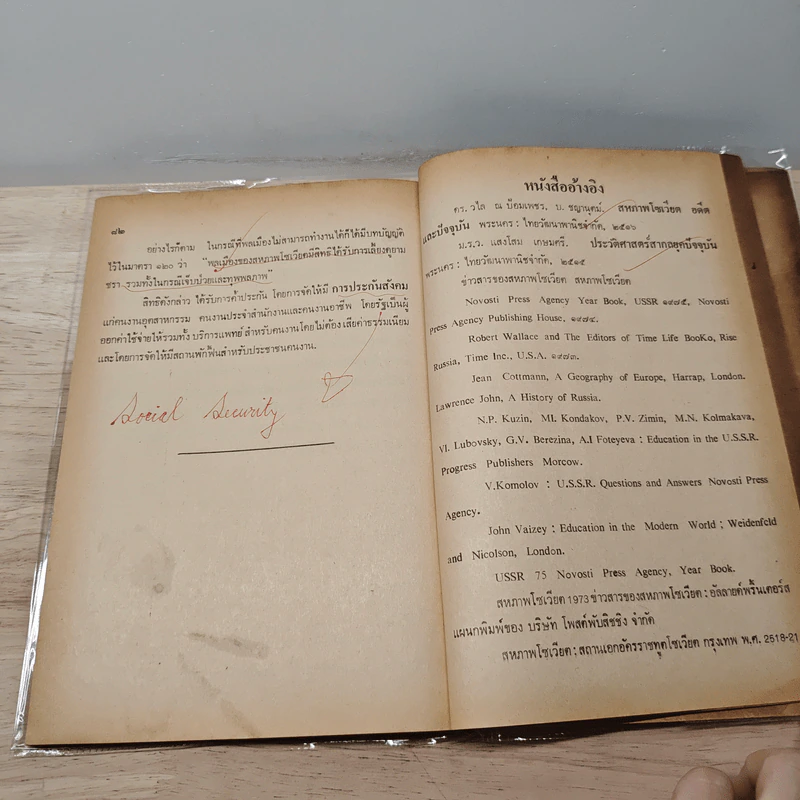 ๘๒
อย่างไรก็ตาม ในกรณีที่พลเมืองไม่สามารถทำงานได้ก็ได้มีบทบัญญัติ
ไว้ในมาตรา ๑๒๐ ว่า "พลเมืองของสหภาพโซเวียตมีสิทธิได้รับการเลี้ยงดูยาม
ชรา รวมทั้งในกรณีเจ็บป่วยและทุพพลภาพ"
สิทธิดังกล่าว ได้รับการค้ำประกัน โดยการจัดให้มี การประกันสังคม
แก่คนงานอุตสาหกรรม คนงานประจำสำนักงานและคนงานอาชีพ โดยรัฐเป็นผู้
ออกค่าใช้จ่ายให้รวมทั้ง บริการแพทย์ สำหรับคนงานโดยไม่ต้อง เสียค่าธรรมเนียม
และโดยการจัดให้มีสถานพักฟื้นสำหรับประชาชนคนงาน.
Social Security
หนังสืออ้างอิง
ดร. วไล ณ ป้อมเพชร, บ. ชญานุตม์, สหภาพโซเวียต อดีต
และปัจจุบัน พระนคร : ไทยวัฒนาพานิชจำกัด, ๒๕๑๖
ม.ร.ว. แสงโสม เกษมศรี. ประวัติศาสตร์สากลยุคปัจจุบัน
พระนคร : ไทยวัฒนาพานิชจำกัด, ๒๕๑๕
ข่าวสารของสหภาพโซเวียต สหภาพโซเวียต
Novosti Press Agency Year Book, USSR ๑๙๗๕, Novosti
Press Agency Publishing House, ๑๙๗๔.
Robert Wallace and The Editors of Time Life BooKo, Rise
Russia, Time Inc., U.S.A. ๑๙๗๓.
Jean Cottmann, A Geography of Europe, Harrap, London.
Lawrence John, A History of Russia.
N.P. Kuzin, MI. Kondakov, P.V. Zimin, M.N. Kolmakava,
VI. Lubovsky, G.V. Berezina, A.I Foteyeva : Education in the U.S.S.R.
Progress Publishers Morcow.
V.Komolov : U.S.S.R. Questions and Answers Novosti Press
Agency.
John Vaizey : Education in the Modern World ; Weidenfeld
and Nicolson, London.
USSR 75 Novosti Press Agency, Year Book.
สหภาพโซเวียต 1973 ข่าวสารของสหภาพโซเวียต : อัลลายด์พริ้นเตอร์ส
แผนกพิมพ์ของ บริษัท โพสต์พับลิชชิง จำกัด
สหภาพโซเวียต : สถานเอกอัครราชทูตโซเวียต กรุงเทพ พ.ศ. 2518-21